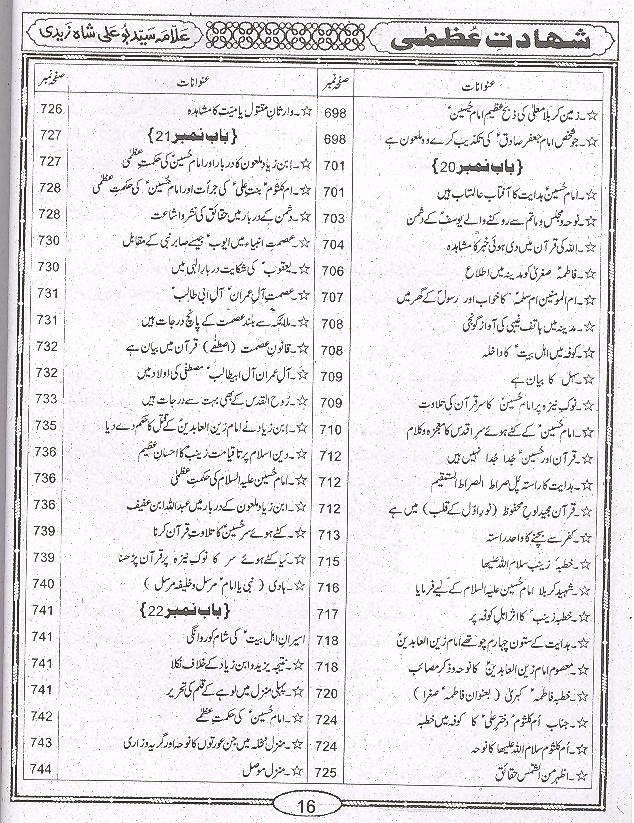 شہادت عُظمٰی
علامہ سید بُو علی شاہ زیدی
عنوانات صفحہ نمبر
☆۔زمین کربلا معلیٰ کی ذبحِ عظیم امام حسینؑ 698
☆۔جو شخص امام جعفر صادقؑ کی تکذیب کرے وہ ملعون ہے 698
{باب نمبر 20} 701
☆۔امام حسینؑ ہدایت کا آفتاب عالمتاب ہیں 701
☆۔نوحہ و مجلس و ماتم سے روکنے والے یوسفؑ کے دشمن 703
☆۔اللہ کی قرآن میں دی ہوئی خبر کا مشاہدہ 704
☆۔فاطمہ صغریٰ کو مدینہ میں اطلاع 706
☆۔ام المومنین ام سلمہؑ کا خواب اور رسولؐ کے گھر میں 707
☆۔مدینہ میں ہاتف غیبی کی آواز گونجی 708
☆۔کوفہ میں اہل بیتؑ کا داخلہ 708
☆۔سہل کا بیان ہے 709
☆۔نوک نیزہ پر امام حسینؑ کا سر قرآن کی تلاوت 709
☆۔امام حسینؑ کے کٹے ہوئے سر اقدس کا معجزہ و کلام 710
☆۔قرآن اور حسینؑ جُدا جُدا نہیں ہیں 712
☆۔ہدایت کا راستہ پل صراط الصراط المستقیم 712
☆۔قرآن مجید لوح محفوظ (نور اوّل کے قلب) میں ہے 712
☆۔کفر سے بچنے کا واحد راستہ 713
☆۔خطبہ زینب سلام اللہ علیہا 715
☆۔شہید کربلا امام حسین علیہ السلام کے لیے فرمایا 716
☆۔خطبہ زینبؑ کا اثر اہل کوفہ پر 717
☆۔ہدایت کے ستون چہارم چوتھے امام زین العابدینؑ 718
☆۔معصوم امام زین العابدینؑ کا نوحہ و ذکر مصائب 718
☆۔خطبہ فاطمہؑ کبریٰ (بعنوان فاطمہؑ صغرا) 720
☆۔جناب اُم کلثومؑ دختر علیؑ کا کوفہ میں خطبہ 724
☆۔اُم کلثوم سلام اللہ علیہا کا نوحہ 724
☆۔اظہر من الشمس حقائق 725
عنوانات صفحہ نمبر
☆۔وارثانِ مقتول یا میّت کا مشاہدہ 726
{باب نمبر 21} 727
☆۔ابن زیاد ملعون کا دربار اور امام حسینؑ کی حکمتِ عظمیٰ 727
☆۔ام کلثومؑ بنت علیؑ کی جرات اور امام حسینؑ کی حکمتِ عظمیٰ 728
☆۔دشمن کے دربار میں حقائق کی نشر و اشاعت 728
☆۔عصمت انبیاء میں ایوبؑ جیسے صابر نبی کے مقابل 730
☆۔یعقوبؑ کی شکایت دربار الٰہی میں 730
☆۔عصمتِ آل عمران آل ابی طالبؑ 731
☆۔ملائکہ سے بلند عصمت کے پانچ درجات ہیں 731
☆۔قانونِ عصمت (اصطفےٰ) قرآن میں بیان ہے 732
☆۔آل عمران آل ابیطالبؑ مصطفیٰ کی اولاد میں 732
☆۔رُوح القدس کے بھی بہت سے درجات ہیں 733
☆۔ابن زیاد نے امام زین العابدینؑ کے قتل کا حکم دے دیا 735
☆۔دین اسلام پر تا قیامت زینبؑ کا احسانِ عظیم 736
☆۔امام حسین علیہ السلام کی حکمتِ عظمٰی 736
☆۔ابن زیاد ملعون کے دربار میں عبداللہ ابن عفیف 736
☆۔کٹے ہوئے سر حسینؑ کا تلاوت قرآن کرنا 739
☆۔کیا کٹے ہوئے سر کا نوک نیزہ پر قرآن پڑھنا 739
☆۔ہادی (نبی یا امام مرسل و خلیفہ مرسل) 740
{باب نمبر 22} 741
اسیران اہل بیتؑ کی شام کو روانگی 741
☆۔نتیجہ یزید و ابن زیاد کے خلاف نکلا 741
☆۔پہلی منزل میں لوہے کے قلم کی تحریر 741
☆۔امام حسینؑ کی حکمتِ عظمٰے 742
☆۔منزل نخلہ میں جن عورتوں کا نوحہ اور گریہ و زاری 743
☆۔منزل موصل 744
16